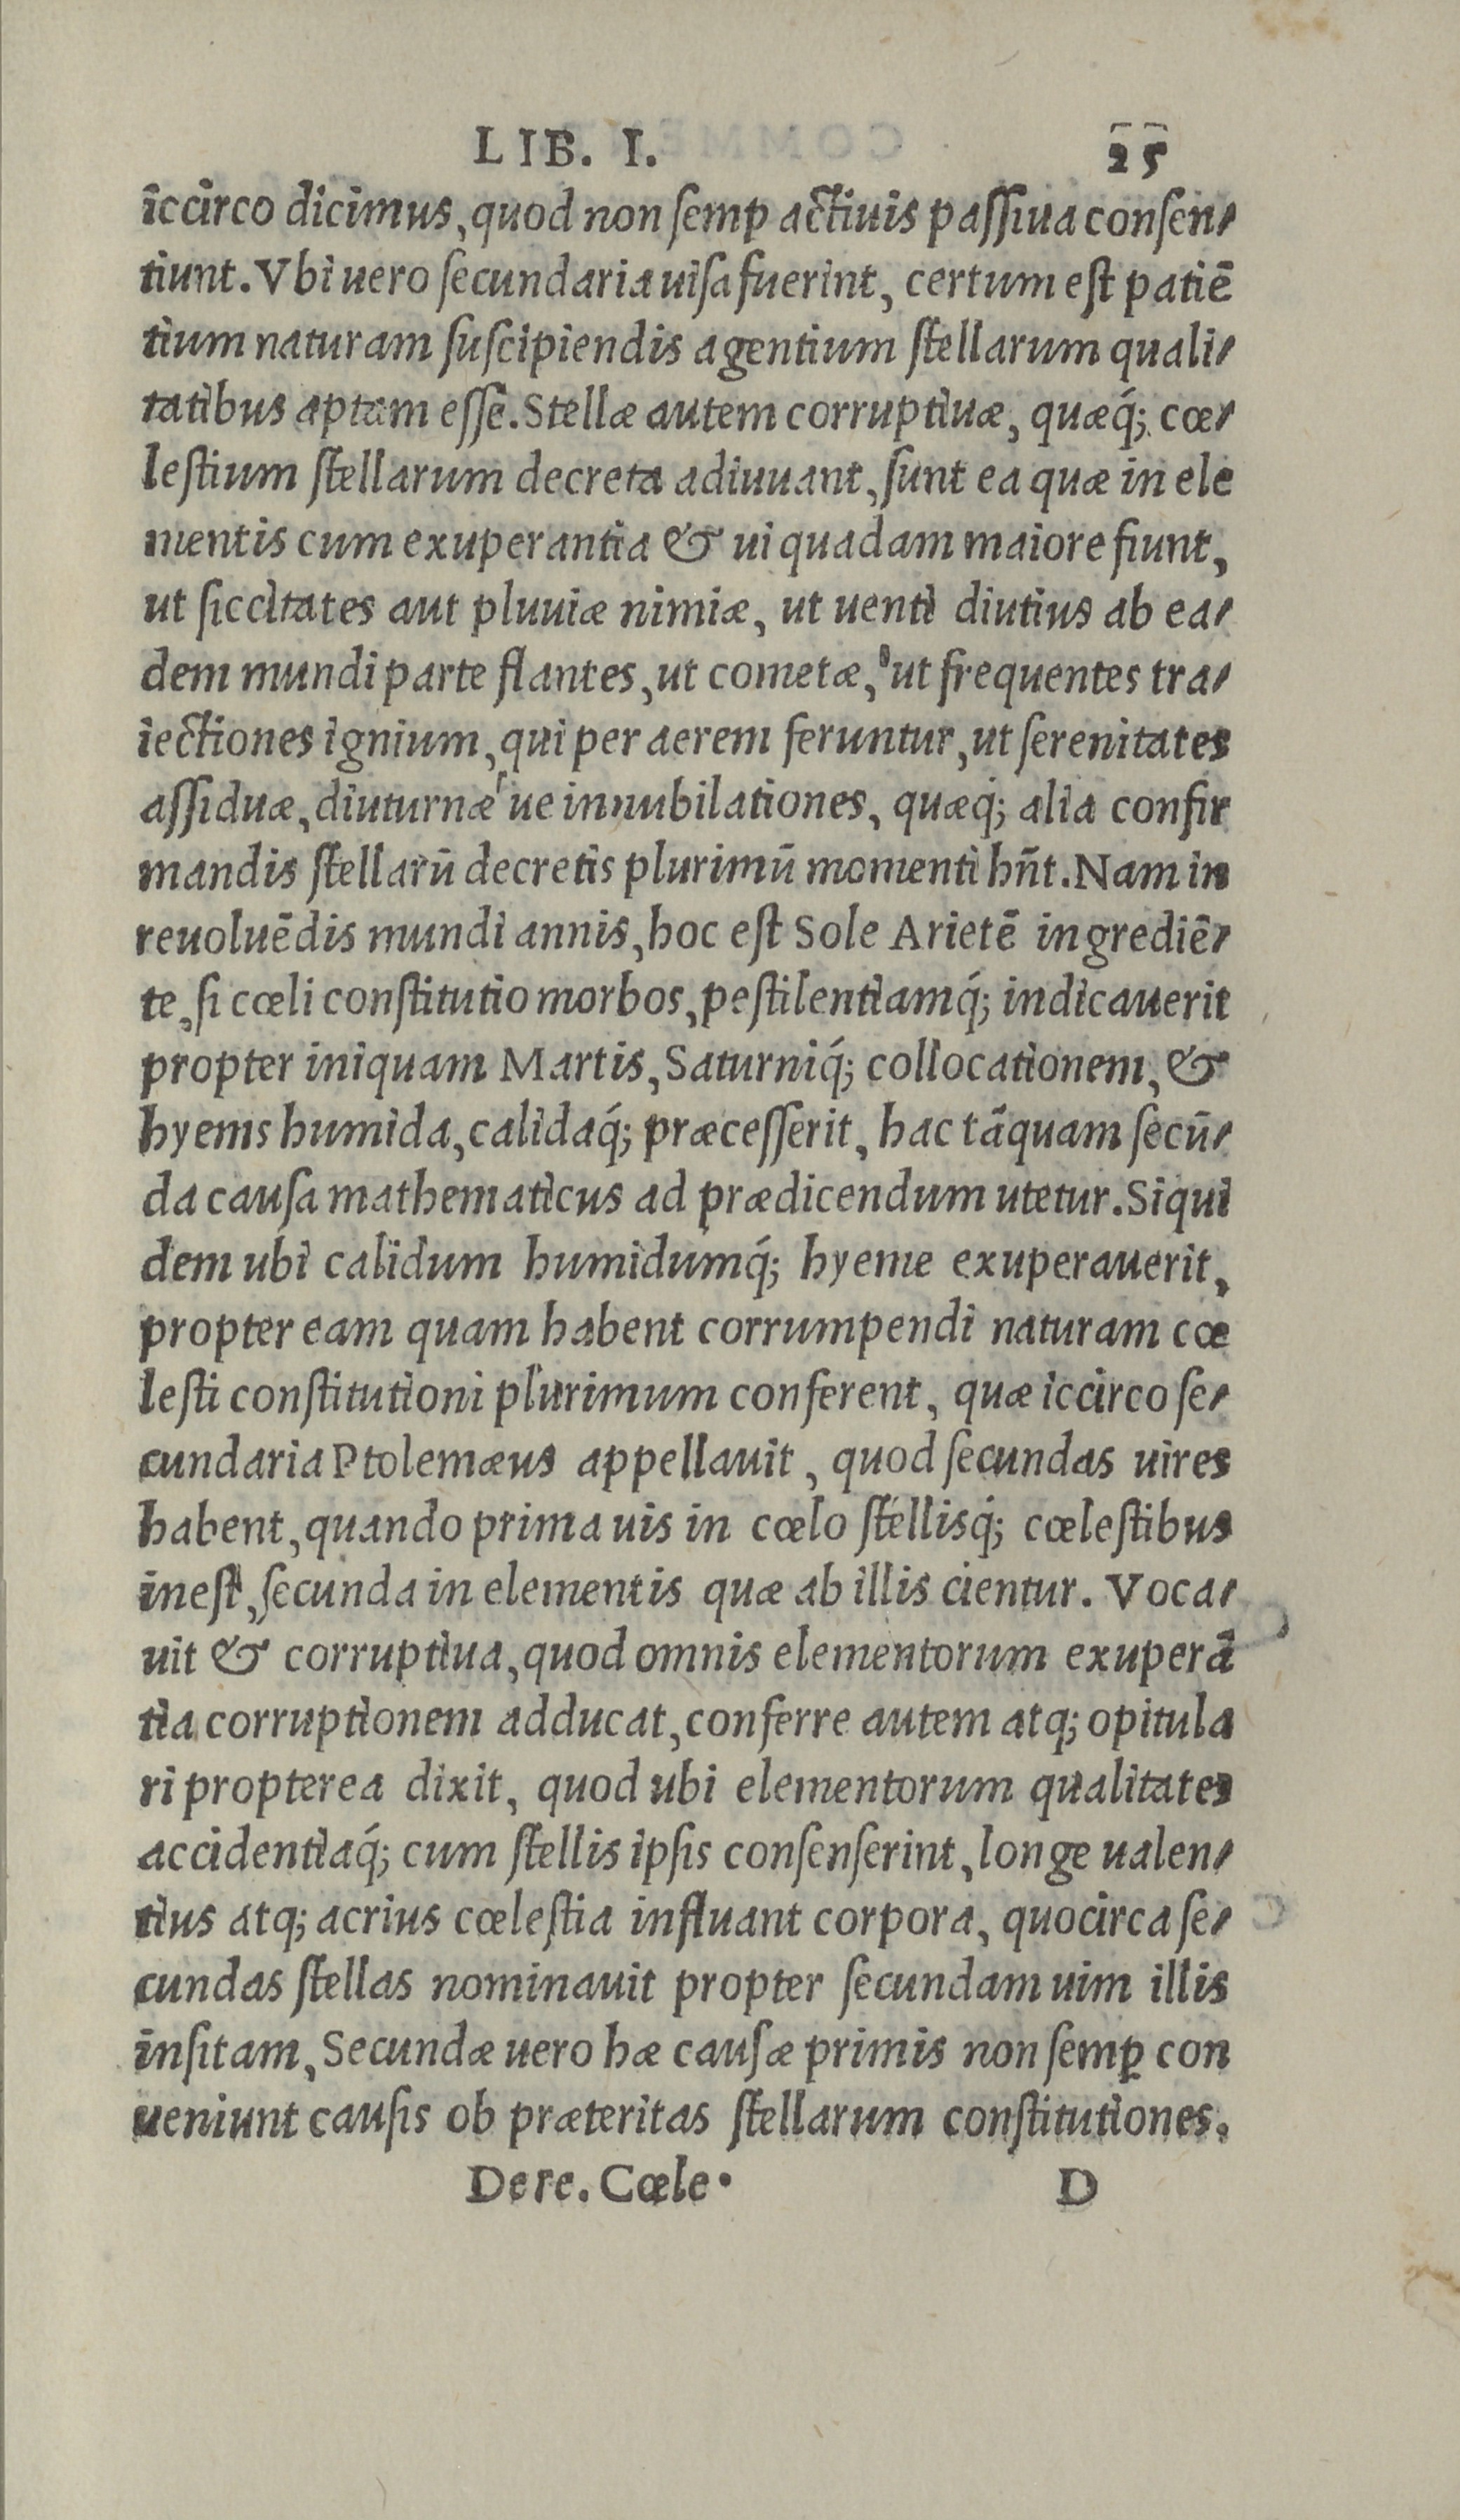 LIB. I. 25
iccirco dicimus, quod non semꝑ actiuis passiua consen-
tiunt. Vbi uero secundaria uisa fuerint, certum est patiē
tium naturam suscipiendis agentium stellarum quali-
tatibus aptam esse. Stellæ autem corruptiuæ, quæq́; cœ-
lestium stellarum decreta adiuuant, sunt ea quæ in ele
mentis cum exuperantia & ui quadam maiore fiunt,
ut siccitates aut pluuiæ nimiæ, ut uenti diutius ab ea-
dem mundi parte flantes, ut cometæ, ut frequentes tra-
iectiones ignium, qui per aerem feruntur, ut serenitates
assiduæ, diuturnæ ue innubilationes, quæq; alia confir
mandis stellarū decretis plurimū momenti hñt. Nam in
reuoluēdis mundi annis, hoc est Sole Arietē ingrediē-
te, si cœli constitutio morbos, pestilentiamq́; indicauerit
propter iniquam Martis, Saturniq́; collocationem, &
hyems humida, calidaq́; præcesserit, hac tāquam secū-
da causa mathematicus ad prædicendum utetur. Siqui
dem ubi calidum humidumq́; hyeme exuperauerit,
propter eam quam habent corrumpendi naturam cœ
lesti constitutioni plurimum conferent, quæ iccirco se-
cundaria Ptolemæus appellauit, quod secundas uires
habent, quando prima uis in cœlo stellisq́; cœlestibus
inest, secunda in elementis quæ ab illis cientur. Voca-
uit & corruptiua, quod omnis elementorum exuperā
tia corruptionem adducat, conferre autem atq; opitula
ri propterea dixit, quod ubi elementorum qualitates
accidentiaq́; cum stellis ipsis consenserint, longe ualen-
tius atq; acrius cœlestia influant corpora, quocirca se-
cundas stellas nominauit propter secundam uim illis
insitam, Secundæ uero hæ causæ primis non semꝑ con
ueniunt causis ob præteritas stellarum constitutiones.
De re. Cœle. D